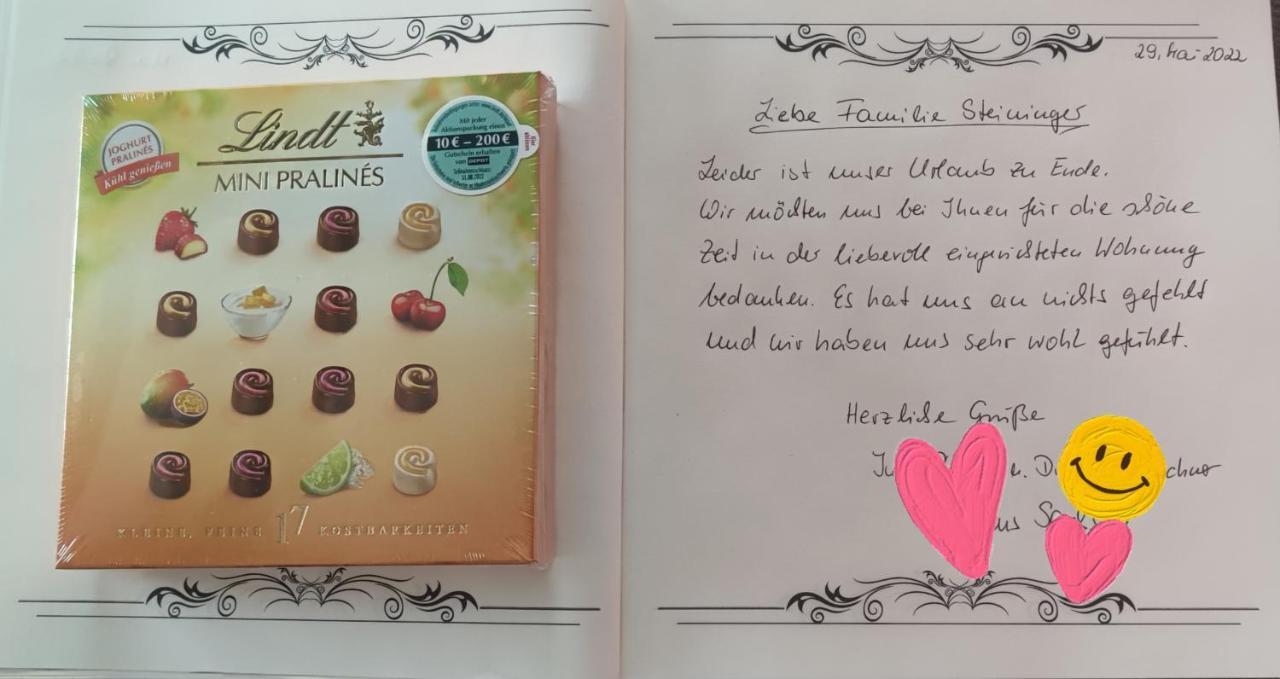 Lindt
MINI PRALINÉS
JOGHURT
PRALINÉS
Kühl genießen
Mit jeder
Aktionspackung einen
10 € – 200 €
Gutschein erhalten
von DEPOT
Teilnahmeschluss:
31.08.2022
KLEINE, FEINE 17 KOSTBARKEITEN
29. Mai 2022
Liebe Familie Steininger
Leider ist unser Urlaub zu Ende.
Wir möchten uns bei Ihnen für die schöne
Zeit in der liebevoll eingerichteten Wohnung
bedanken. Es hat uns an nichts gefehlt
und wir haben uns sehr wohl gefühlt.
Herzliche Grüße